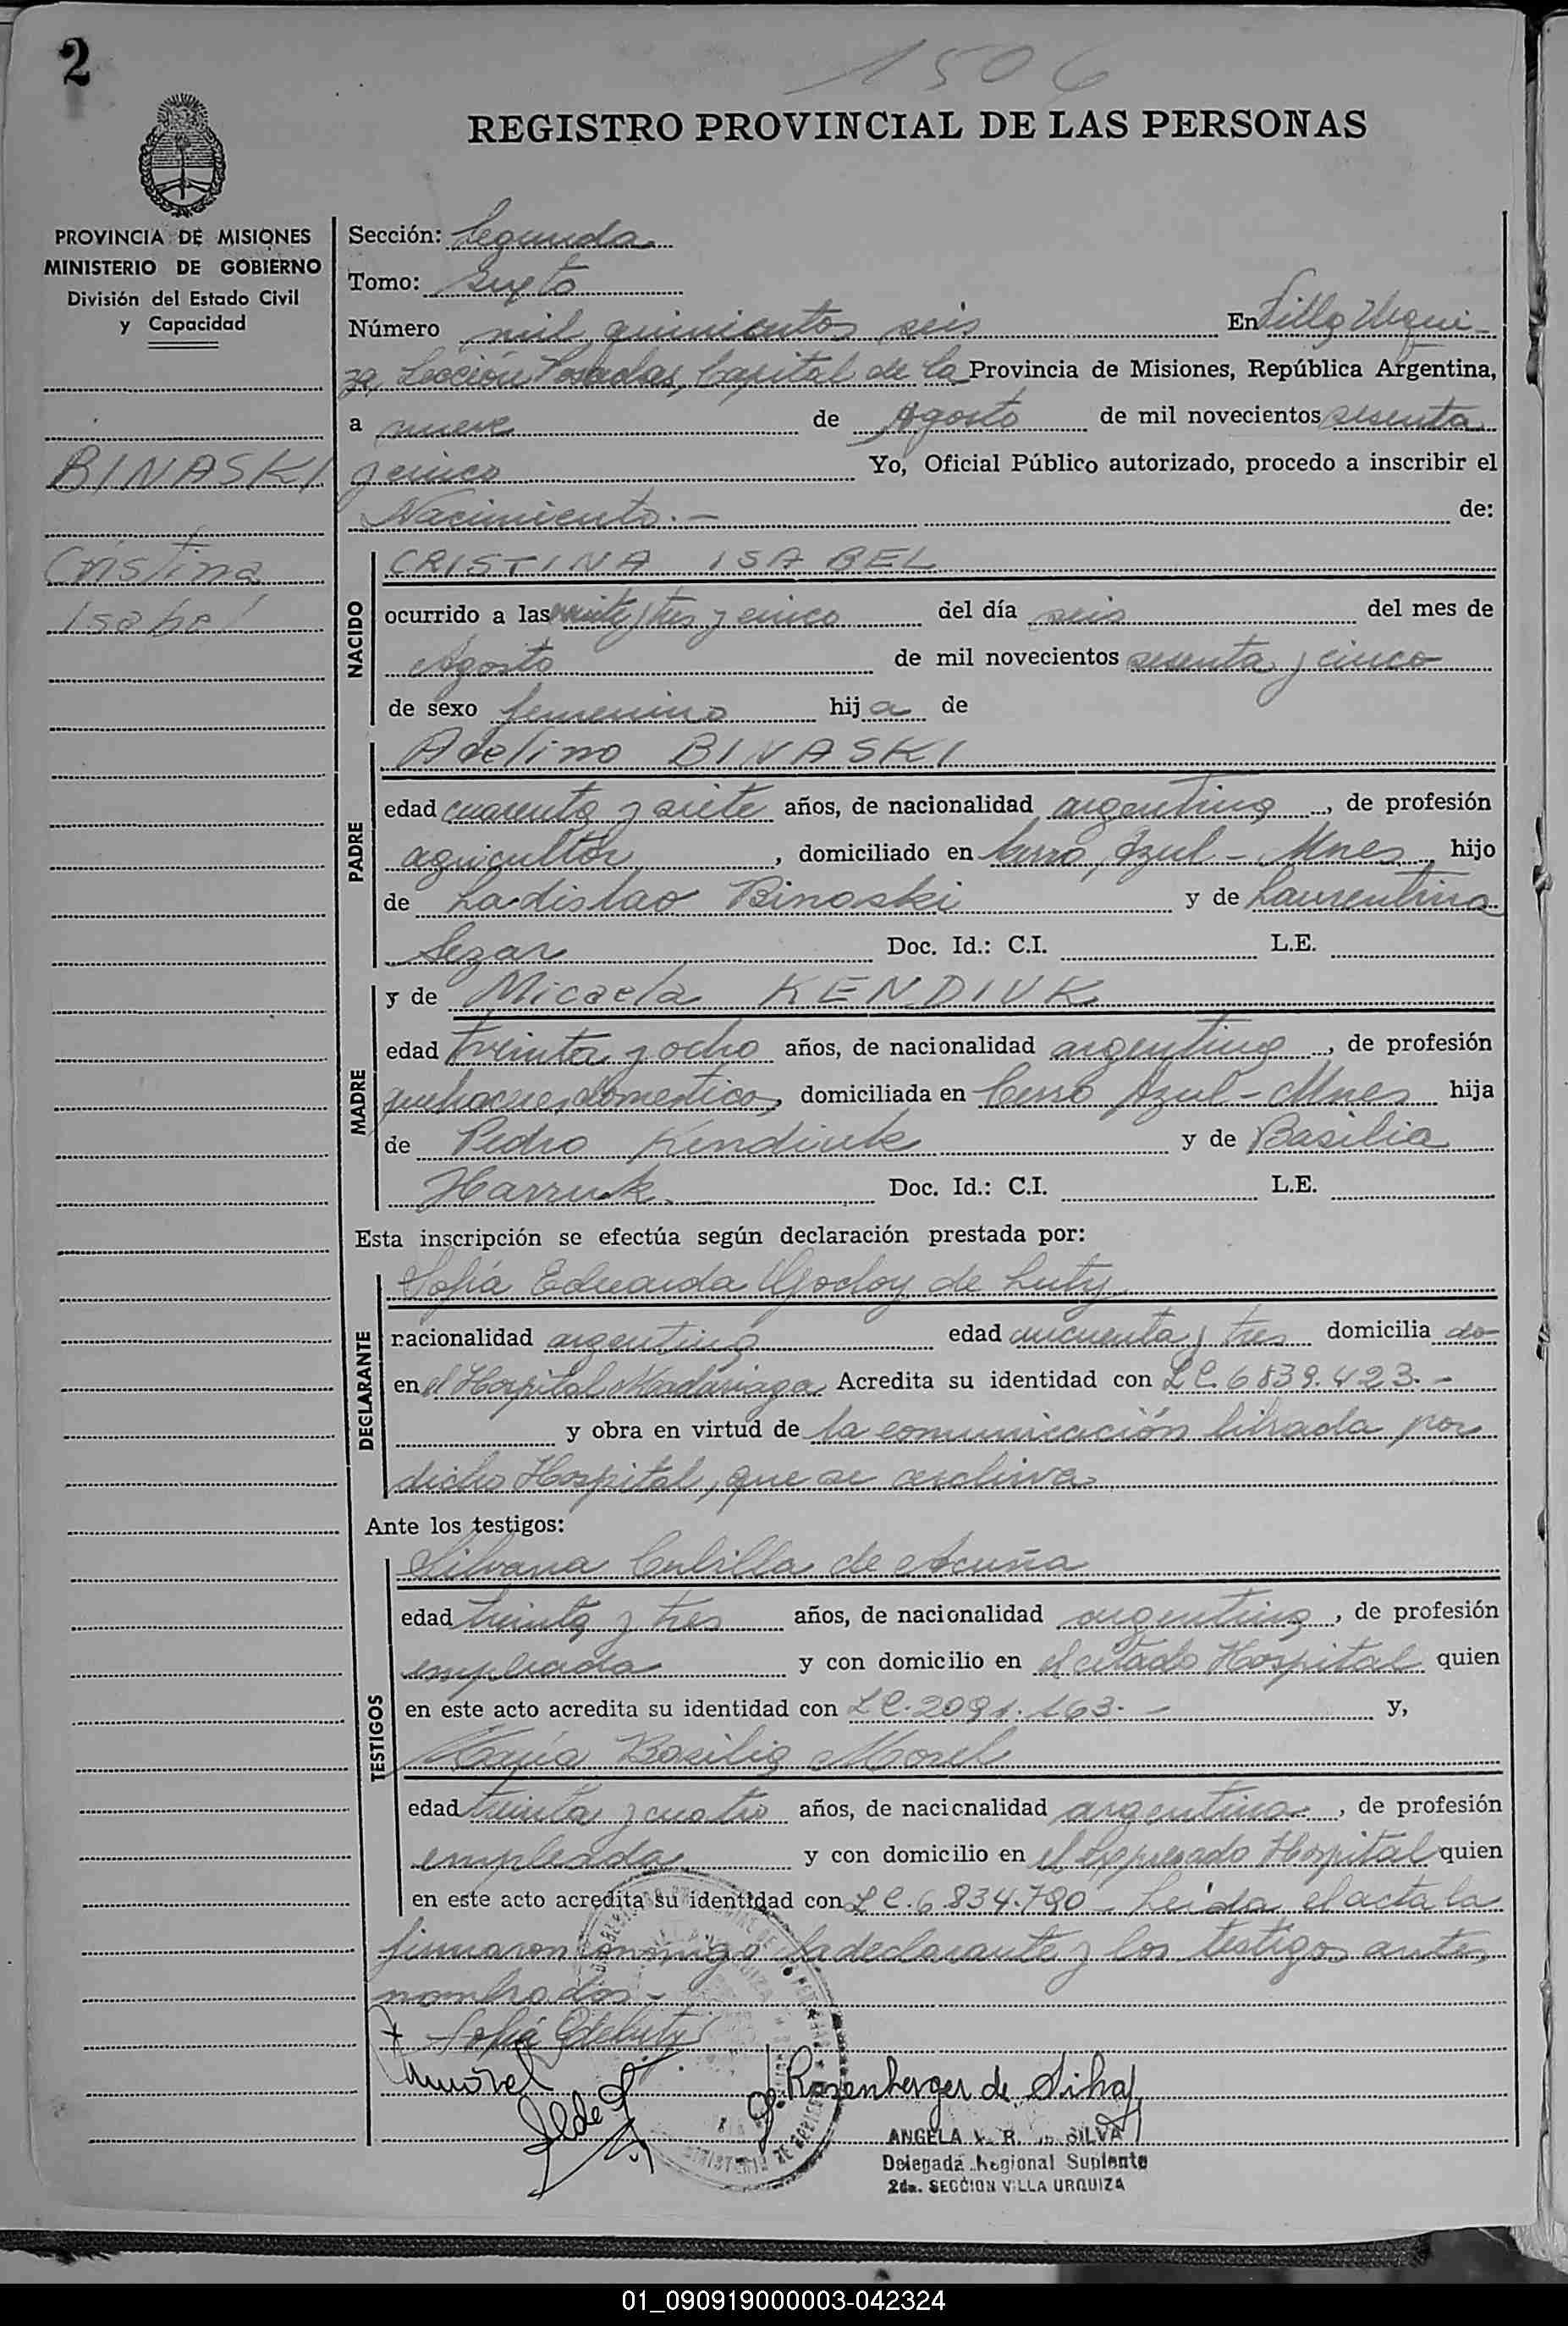 2
1506
REGISTRO PROVINCIAL DE LAS PERSONAS
PROVINCIA DE MISIONES
MINISTERIO DE GOBIERNO
División del Estado Civil
y Capacidad
BINASKI
Cristina
Isabel
Sección: Segunda
Tomo: Sexto
Número mil quinientos seis En Villa Urqui-
za, Sección Posadas, Capital de la Provincia de Misiones, República Argentina,
a nueve de Agosto de mil novecientos sesenta
y cinco Yo, Oficial Público autorizado, procedo a inscribir el
Nacimiento.- de:
NACIDO
CRISTINA ISABEL
ocurrido a las veinte, tres y cinco del día seis del mes de
Agosto de mil novecientos sesenta y cinco
de sexo femenino hija de
PADRE
Adelino BINASKI
edad cuarenta y siete años, de nacionalidad argentina, de profesión
agricultor, domiciliado en Cerro Azul - Mnes, hijo
de Ladislao Binaski y de Laurentina
Sezar Doc. Id.: C.I. L.E.
MADRE
y de Micaela KENDIUK
edad treinta y ocho años, de nacionalidad argentina, de profesión
quehaceres domesticos, domiciliada en Cerro Azul - Mnes hija
de Pedro Kendiuk y de Basilia
Harruk Doc. Id.: C.I. L.E.
Esta inscripción se efectúa según declaración prestada por:
DECLARANTE
Sofía Eduarda Godoy de Luty
nacionalidad argentina edad cincuenta y tres domicilia do
en el Hospital Madariaga Acredita su identidad con L C. 6839.423.-
y obra en virtud de la comunicación librada por
dicho Hospital, que se archiva
Ante los testigos:
TESTIGOS
Silvana Cubilla de Acuña
edad treinta y tres años, de nacionalidad argentina, de profesión
empleada y con domicilio en el citado Hospital quien
en este acto acredita su identidad con L C. 2091.163.- y,
María Basilia Morel
edad treinta y cuatro años, de nacionalidad argentina, de profesión
empleada y con domicilio en el expresado Hospital quien
en este acto acredita su identidad con L C. 6.834.790 - Leída el acta la
firmaron conmigo la declarante y los testigos antes
nombrados.-
Sofía G de Luty
Morel
Rosenberger de Silva
ANGELA R. de SILVA
Delegada Regional Suplente
2da. SECCION VILLA URQUIZA
01_090919000003-042324